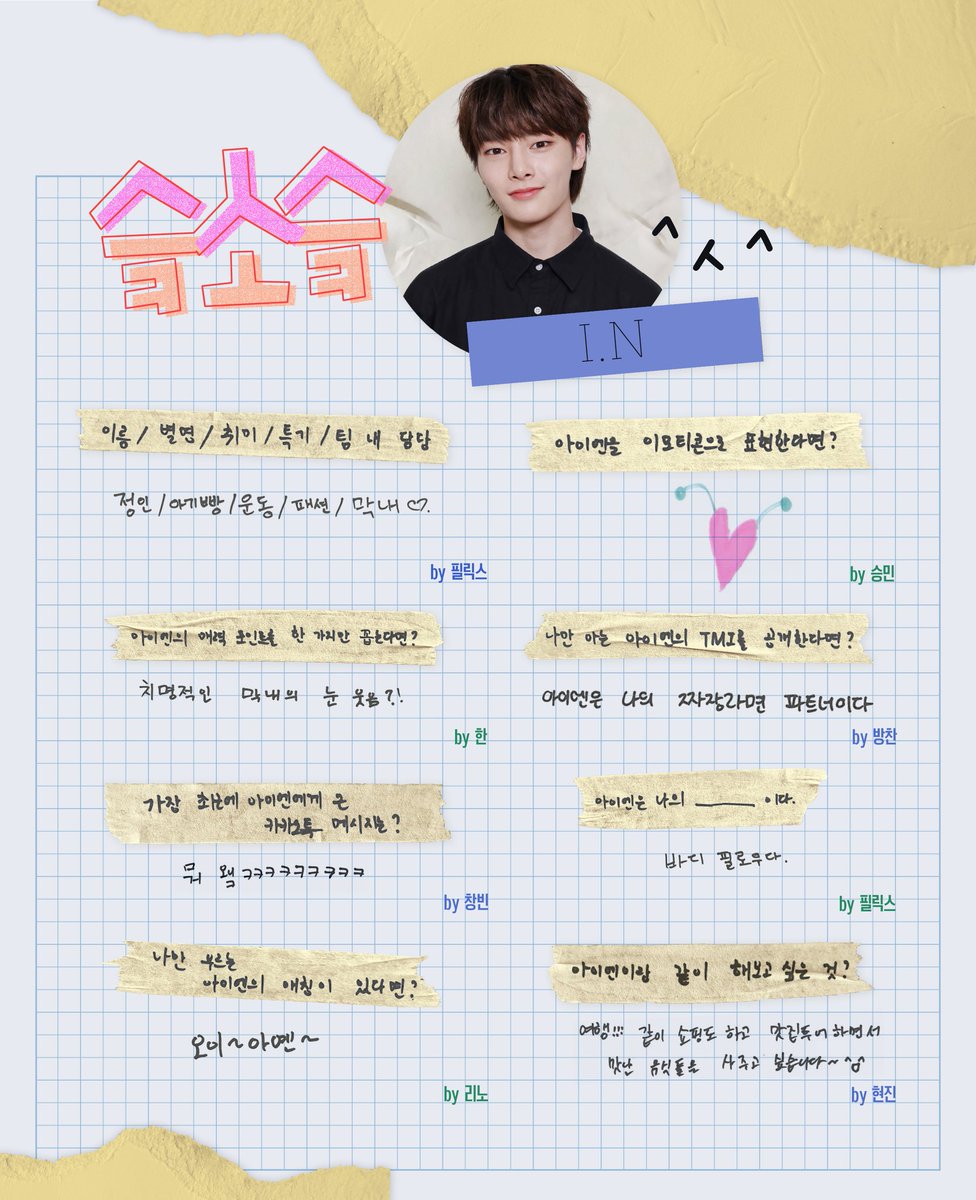 슼소슼
^ㅅ^
I.N
이름 / 별명 / 취미 / 특기 / 팀 내 담당
정인 / 아기빵 / 운동 / 패션 / 막내♡.
by 필릭스
아이엔을 이모티콘으로 표현한다면?
by 승민
아이엔의 매력 포인트를 한 가지만 꼽는다면?
치명적인 막내의 눈 웃음?!
by 한
나만 아는 아이엔의 TMI를 공개한다면?
아이엔은 나의 짜장라면 파트너이다
by 방찬
가장 최근에 아이엔에게 온
카카오톡 메시지는?
뭐 왴ㅋㅋㅋㅋㅋㅋㅋㅋㅋ
by 창빈
아이엔은 나의 ______ 이다.
바디 필로우다.
by 필릭스
나만 부르는
아이엔의 애칭이 있다면?
오이~아옌~
by 리노
아이엔이랑 같이 해보고 싶은 것?
여행!!! 같이 쇼핑도 하고 맛집투어 하면서
맛난 음식들을 사주고 싶습니다~^^
by 현진